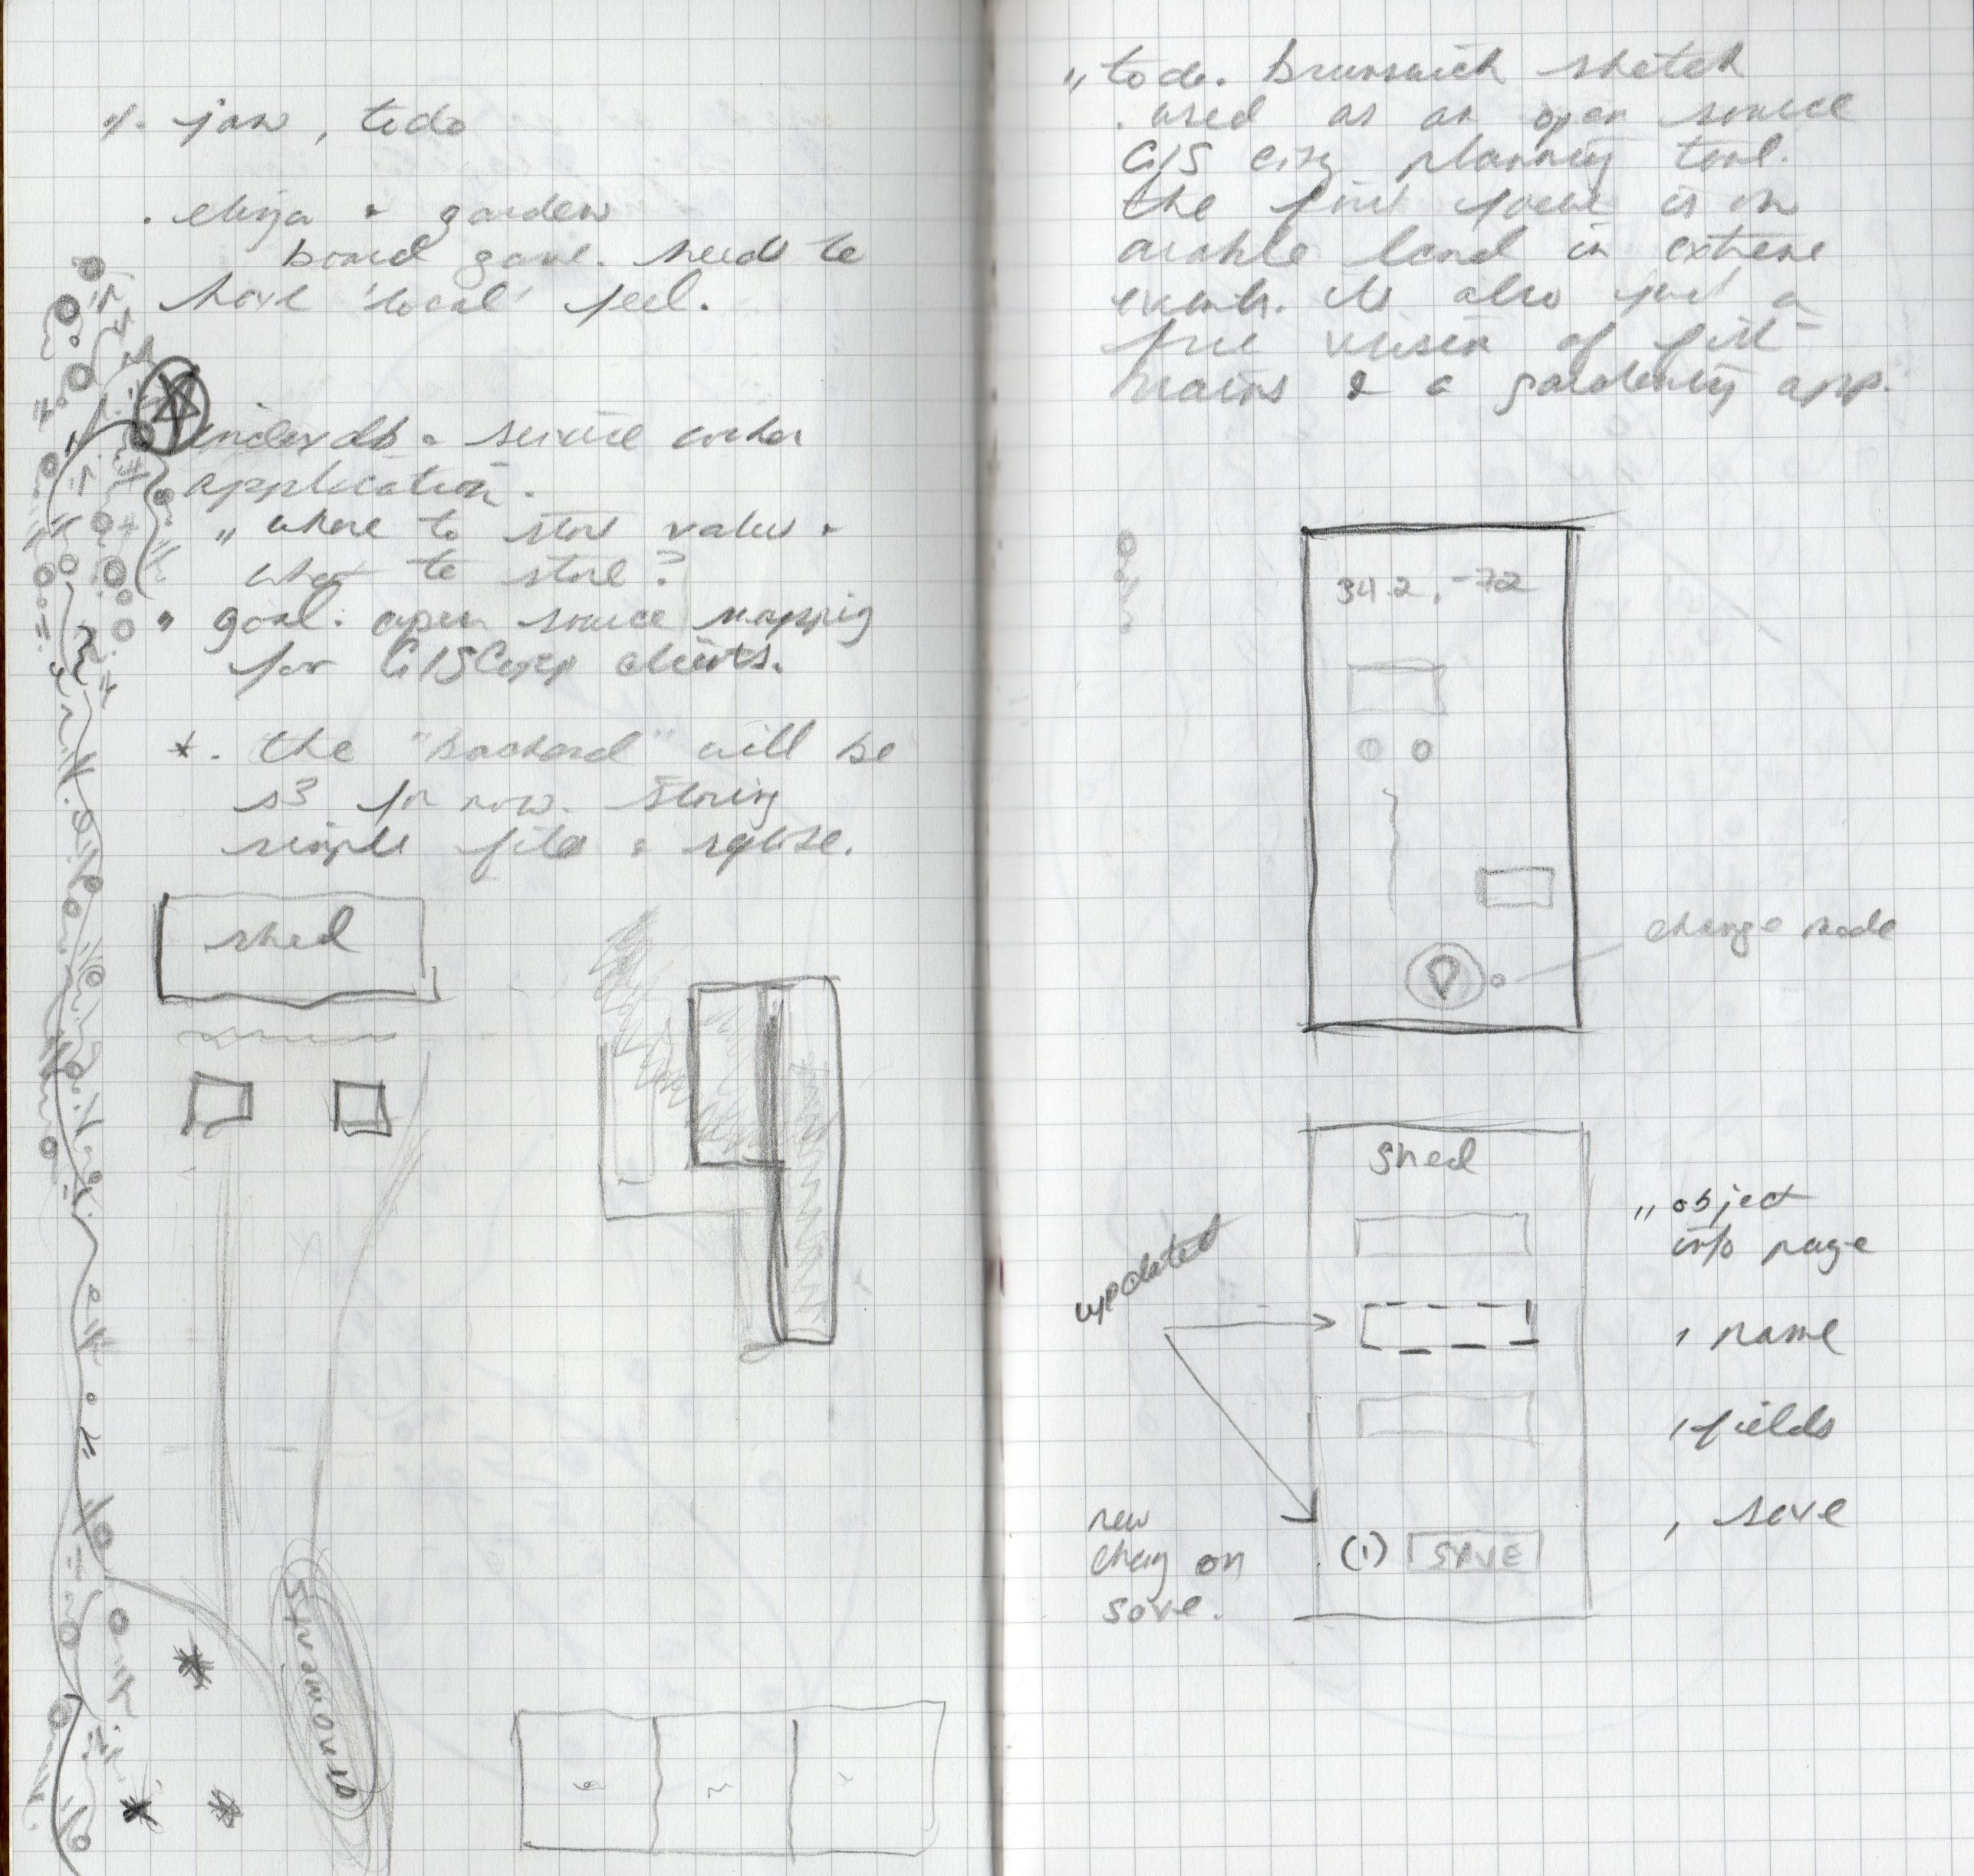 4. jan, todo
. elinja + garden
board game. needs to
have 'local' feel.
indexdb + service worker
application.
" where to store values +
what to store?
" goal: open source mapping
for GISCorp clients.
*. the "backend" will be
s3 for now. storing
simple files + sqlite.
shed
strawound
" todo. brunswick sketch
. used as an open source
GIS city planning tool.
the first focus is on
arable land in extreme
events. its also just a
free version of
& a gardening app.
34.2, -72
change mode
shed
" object
info page
updated
, name
, fields
, save
new
on
save.
(1) SAVE